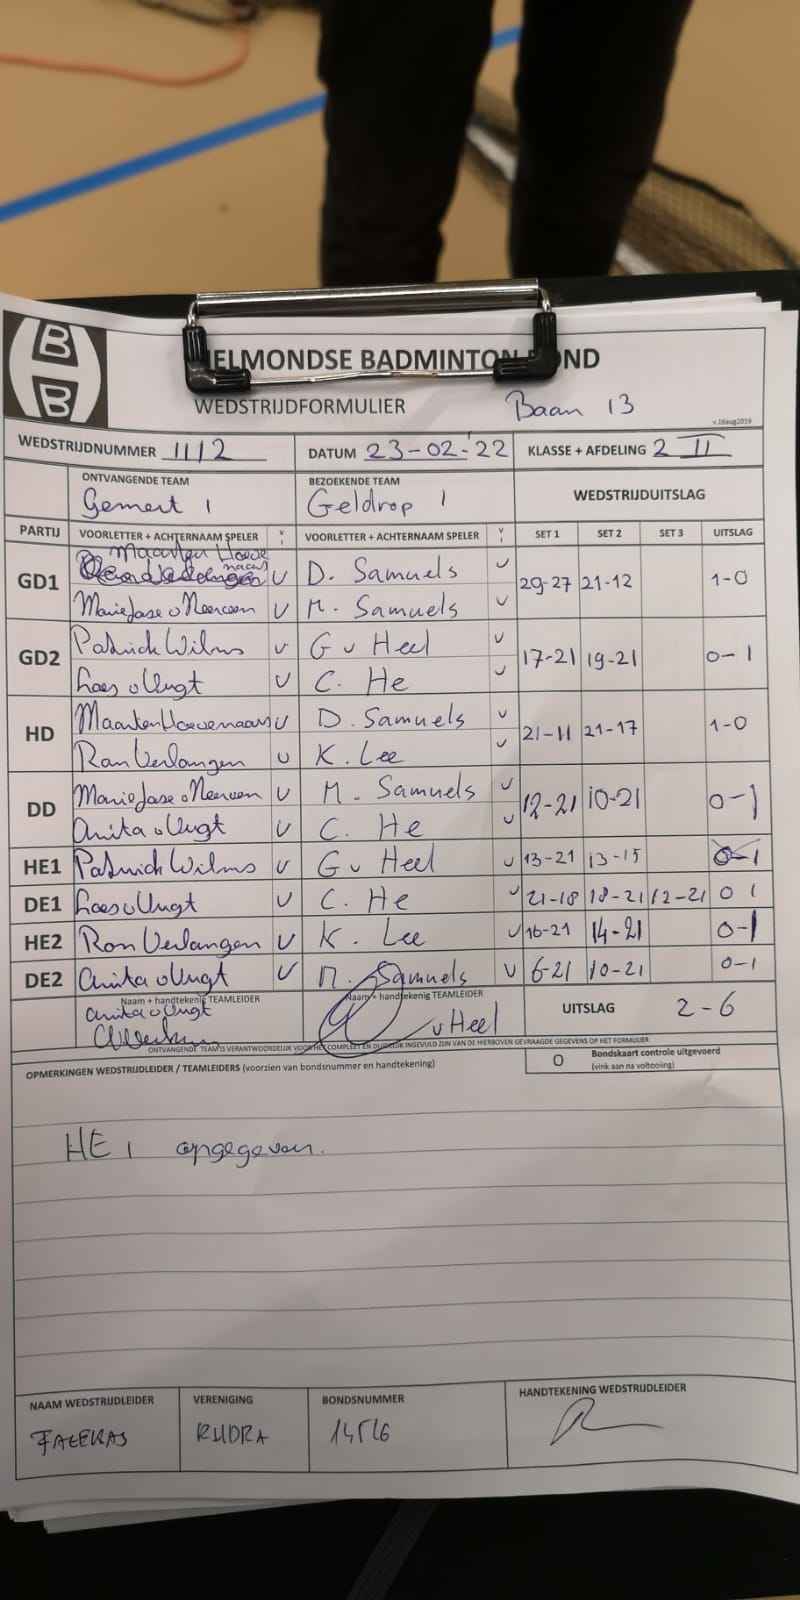 B
H
B
HELMONDSE BADMINTON BOND
WEDSTRIJDFORMULIER Baan 13
v.16aug2019
WEDSTRIJDNUMMER 1112 DATUM 23-02-'22 KLASSE + AFDELING 2 II
ONTVANGENDE TEAM BEZOEKENDE TEAM WEDSTRIJDUITSLAG
Gemert 1 Geldrop 1
PARTIJ VOORLETTER + ACHTERNAAM SPELER V VOORLETTER + ACHTERNAAM SPELER V SET 1 SET 2 SET 3 UITSLAG
Maarten Hoeve
naars
GD1 V D. Samuels V 29-27 21-12 1-0
MarieJose v Neerven V M. Samuels V
GD2 Patrick Wilms V G v Heel V 17-21 19-21 0-1
Loes v Vugt V C. He V
HD Maarten Hoevenaars V D. Samuels V 21-11 21-17 1-0
Ron Verlangen V K. Lee V
DD MarieJose v Neerven V M. Samuels V 12-21 10-21 0-1
Anita v Vugt V C. He V
HE1 Patrick Wilms V G v Heel V 13-21 13-15 0-1
DE1 Loes v Vugt V C. He V 21-18 18-21 12-21 0 1
HE2 Ron Verlangen V K. Lee V 16-21 14-21 0-1
DE2 Anita v Vugt V M. Samuels V 6-21 10-21 0-1
Naam + handtekenig TEAMLEIDER Naam + handtekenig TEAMLEIDER UITSLAG 2-6
Anita v Vugt
v Heel
ONTVANGENDE TEAM IS VERANTWOORDELIJK VOOR HET COMPLEET EN DUIDELIJK INGEVULD ZIJN VAN DE HIERBOVEN GEVRAAGDE GEGEVENS OP HET FORMULIER
OPMERKINGEN WEDSTRIJDLEIDER / TEAMLEIDERS (voorzien van bondsnummer en handtekening) O Bondskaart controle uitgevoerd
(vink aan na voltooiing)
HE1 opgegeven.
NAAM WEDSTRIJDLEIDER VERENIGING BONDSNUMMER HANDTEKENING WEDSTRIJDLEIDER
RUDRA